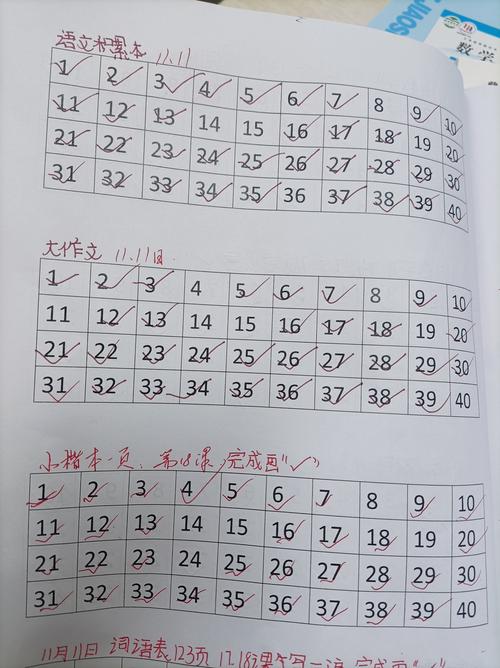 JIAOSH
数学
语文积累本 11.11
1 2 3 4 5 6 7 8 9 10
11 12 13 14 15 16 17 18 19 20
21 22 23 24 25 26 27 28 29 30
31 32 33 34 35 36 37 38 39 40
大作文 11.11日
1 2 3 4 5 6 7 8 9 10
11 12 13 14 15 16 17 18 19 20
21 22 23 24 25 26 27 28 29 30
31 32 33 34 35 36 37 38 39 40
小楷本一页，第18课，完成画"✓"
1 2 3 4 5 6 7 8 9 10
11 12 13 14 15 16 17 18 19 20
21 22 23 24 25 26 27 28 29 30
31 32 33 34 35 36 37 38 39 40
11月11日 词语表123页 17.18课